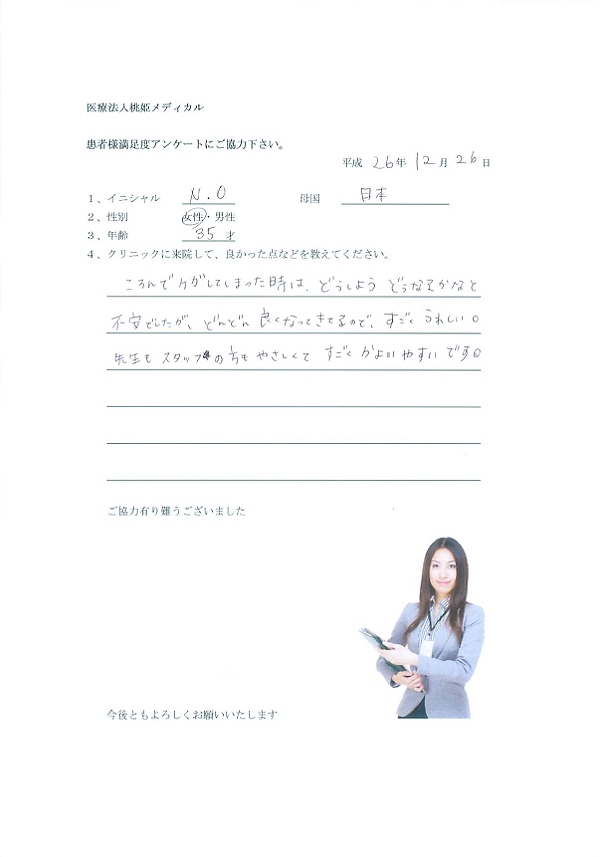 医療法人桃姫メディカル
患者様満足度アンケートにご協力下さい。
平成 26年 12月 26日
1、イニシャル N.O 母国 日本
2、性別 女性・男性
3、年齢 35才
4、クリニックに来院して、良かった点などを教えてください。
ころんでケガしてしまった時は、どうしよう どうなるかなと
不安でしたが、どんどん 良くなってきてるので、すごく うれしい。
先生も スタッフの方も やさしくて すごく かよいやすいです。
ご協力有り難うございました
今後ともよろしくお願いいたします